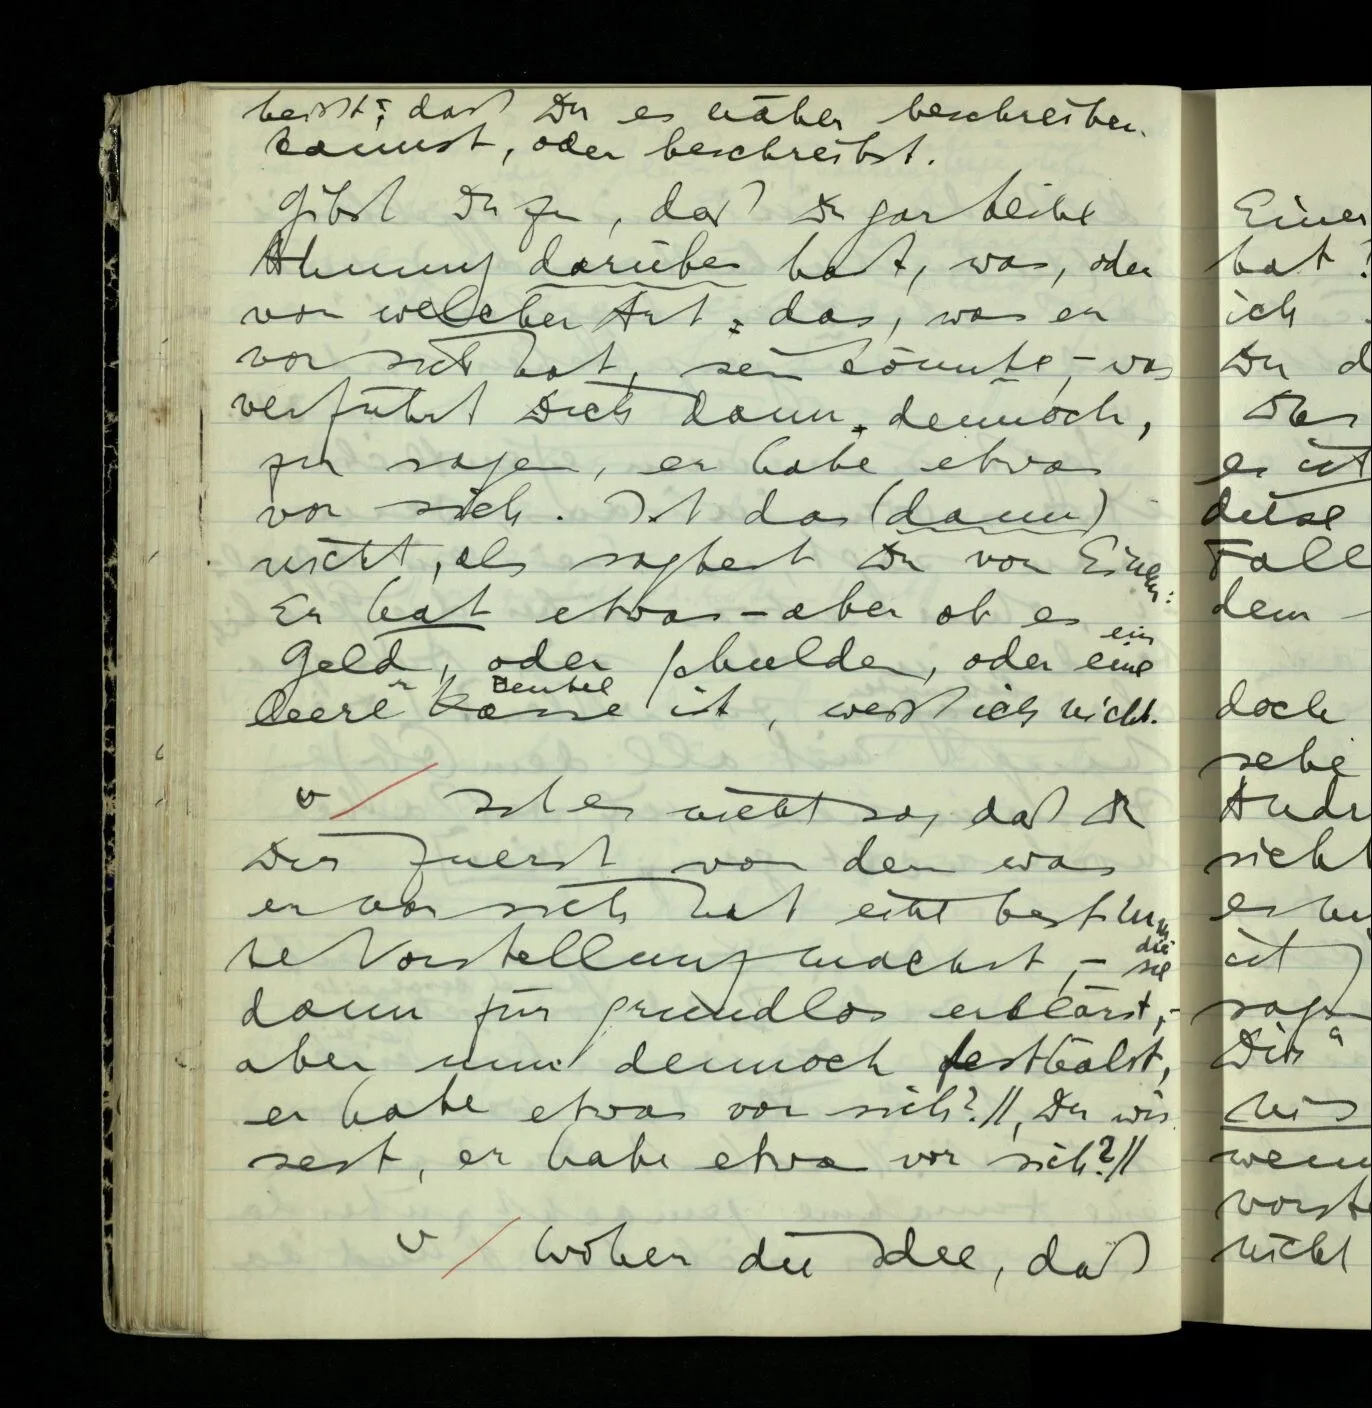 heißt; daß Du es näher beschreiben
kannst, oder beschreibst.
Gibst Du zu, daß Du gar keine
Ahnung darüber hast, was, oder
von welcher Art, das, was er
vor sich hat, sein könnte, – was
verführt Dich dann, dennoch,
zu sagen, er habe etwas
vor sich. Ist das (dann)
nicht, als sagtest Du von Einem:
Er hat etwas – aber ob es
Geld, oder Schulden, oder eine ein
leere er Kasse Beutel ist, weiß ich nicht.
v / Ist es nicht so, daß Du
Dir zuerst von dem was
er vor sich hat eine bestimm
te Vorstellung machst, – sie die
dann für grundlos erklärst, –
aber nun dennoch festhälst,
er habe etwas vor sich? //, Du wis
sest, er habe etwas vor sich? //
v / Woher die Idee, daß
Einer
hat?
ich
Du d
Das
es ist
diese
Fall
dem
doch
sehe
Andr
sicht
ist
sagen
Dir
wenn
vorste
nicht